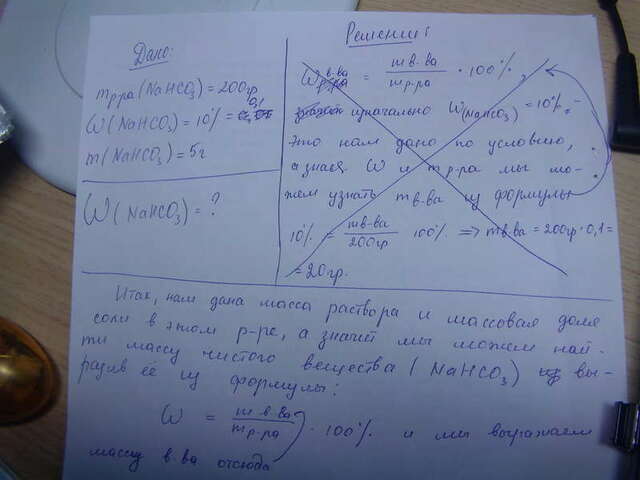 Дано:
mр-ра (NaHCO3) = 200гр
ω (NaHCO3) = 10% = 0,1
m (NaHCO3) = 5г
ω (NaHCO3) = ?
Решение:
ω в-ва = mв-ва / mр-ра · 100%,
изначально ω(NaHCO3) = 10%, -
это нам дано по условию,
а зная ω и mр-ра мы мо-
жем узнать mв-ва из формулы
10% = mв-ва / 200гр · 100% => mв-ва = 200гр · 0,1 =
= 20гр.
Итак, нам дана масса раствора и массовая доля
соли в этом р-ре, а значит мы можем най-
ти массу чистого вещества (NaHCO3) вы-
разив её из формулы:
ω = mв-ва / mр-ра · 100% и мы выражаем
массу в-ва отсюда